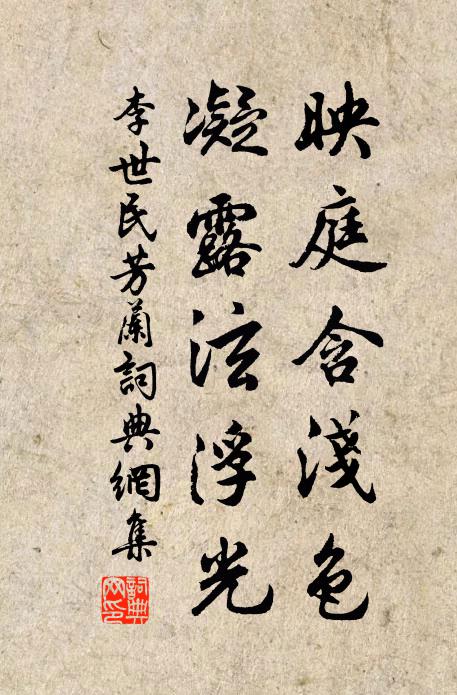 映庭含淺色
凝露泫浮光
李世民芳蘭詞典網集
詞典网印